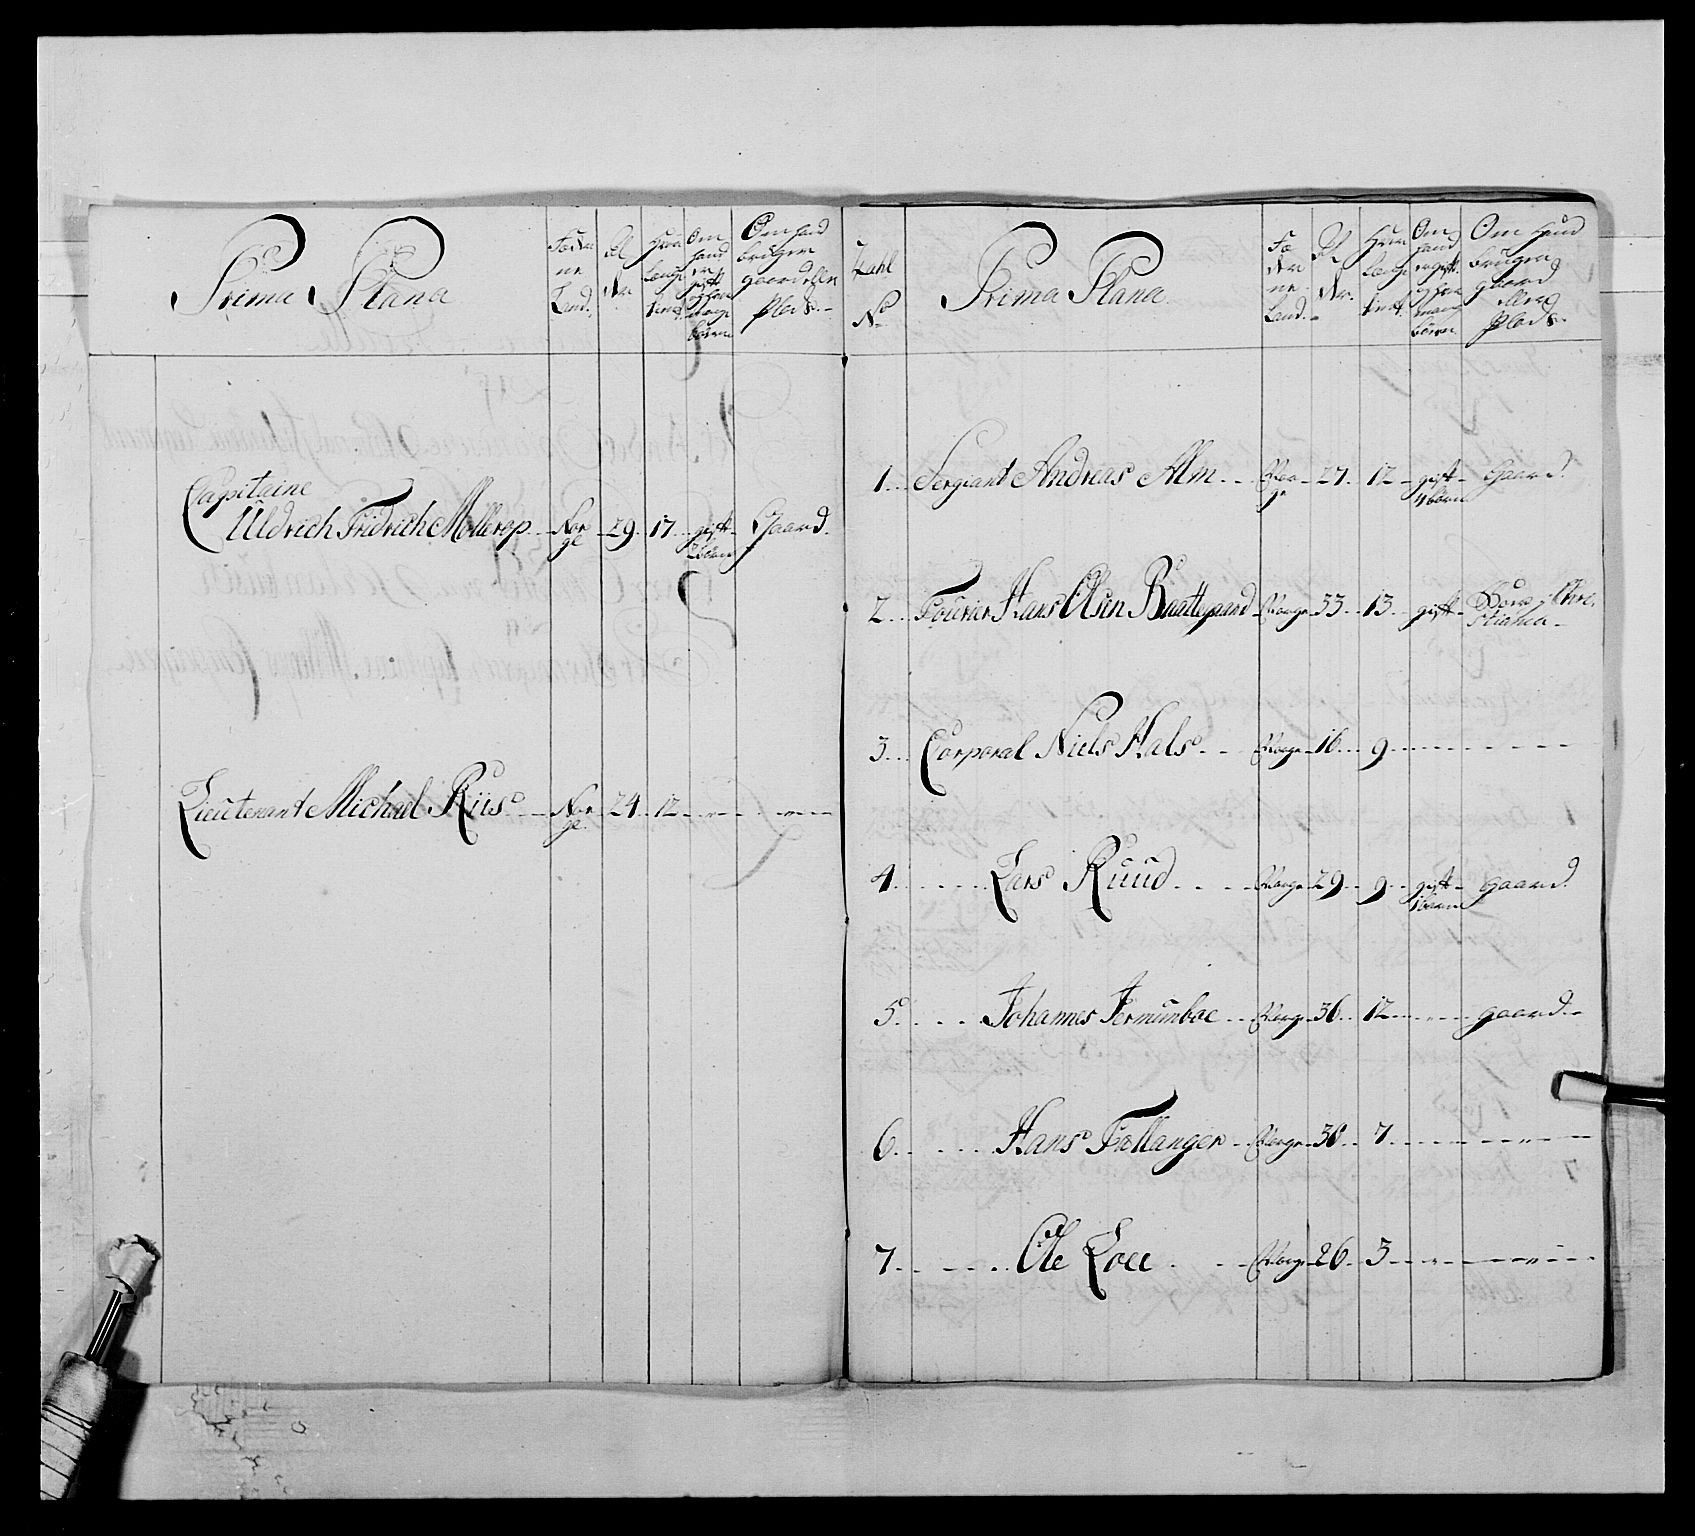 Prima Plana
Fæderne Land.
Alder.
Hvor Lenge tient.
Om hand er gift og hvor mange börn
Om hand bruger gaard eller Plads.
Capitaine
Uldrich Fridrich Mollerop Norge 29 17 gift 2 börn Gaard.
Lieutenant Michael Riis Norge 24 12
Zahl No
Prima Plana
Fæderne Land.
Alder.
Hvor Lenge tient.
Om hand er gift og hvor mange börn
Om hand bruger gaard eller Plads.
1 Sergiant Andreas Alm Norge 27 12 gift 4 börn Gaard.
2 Fourier Hans Olsen Norge 33 13 gift
3 Corporal Niels Hals Norge 16 9
4 Lars Ruud Norge 29 9 gift 1 barn gaard.
5 Johannes Norge 36 12 gaard
6 Hans Norge 38 7
7 Ole Loee Norge 26 3